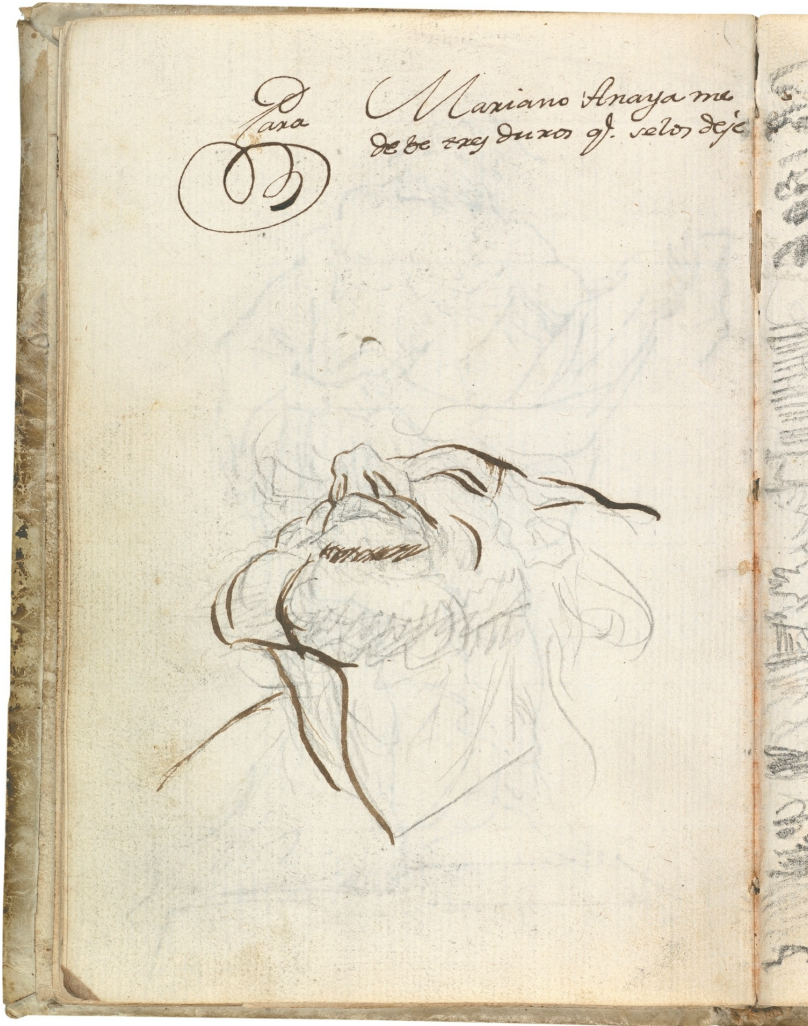 Para
Mariano Anaya me
debe tres duros q.e selos deje